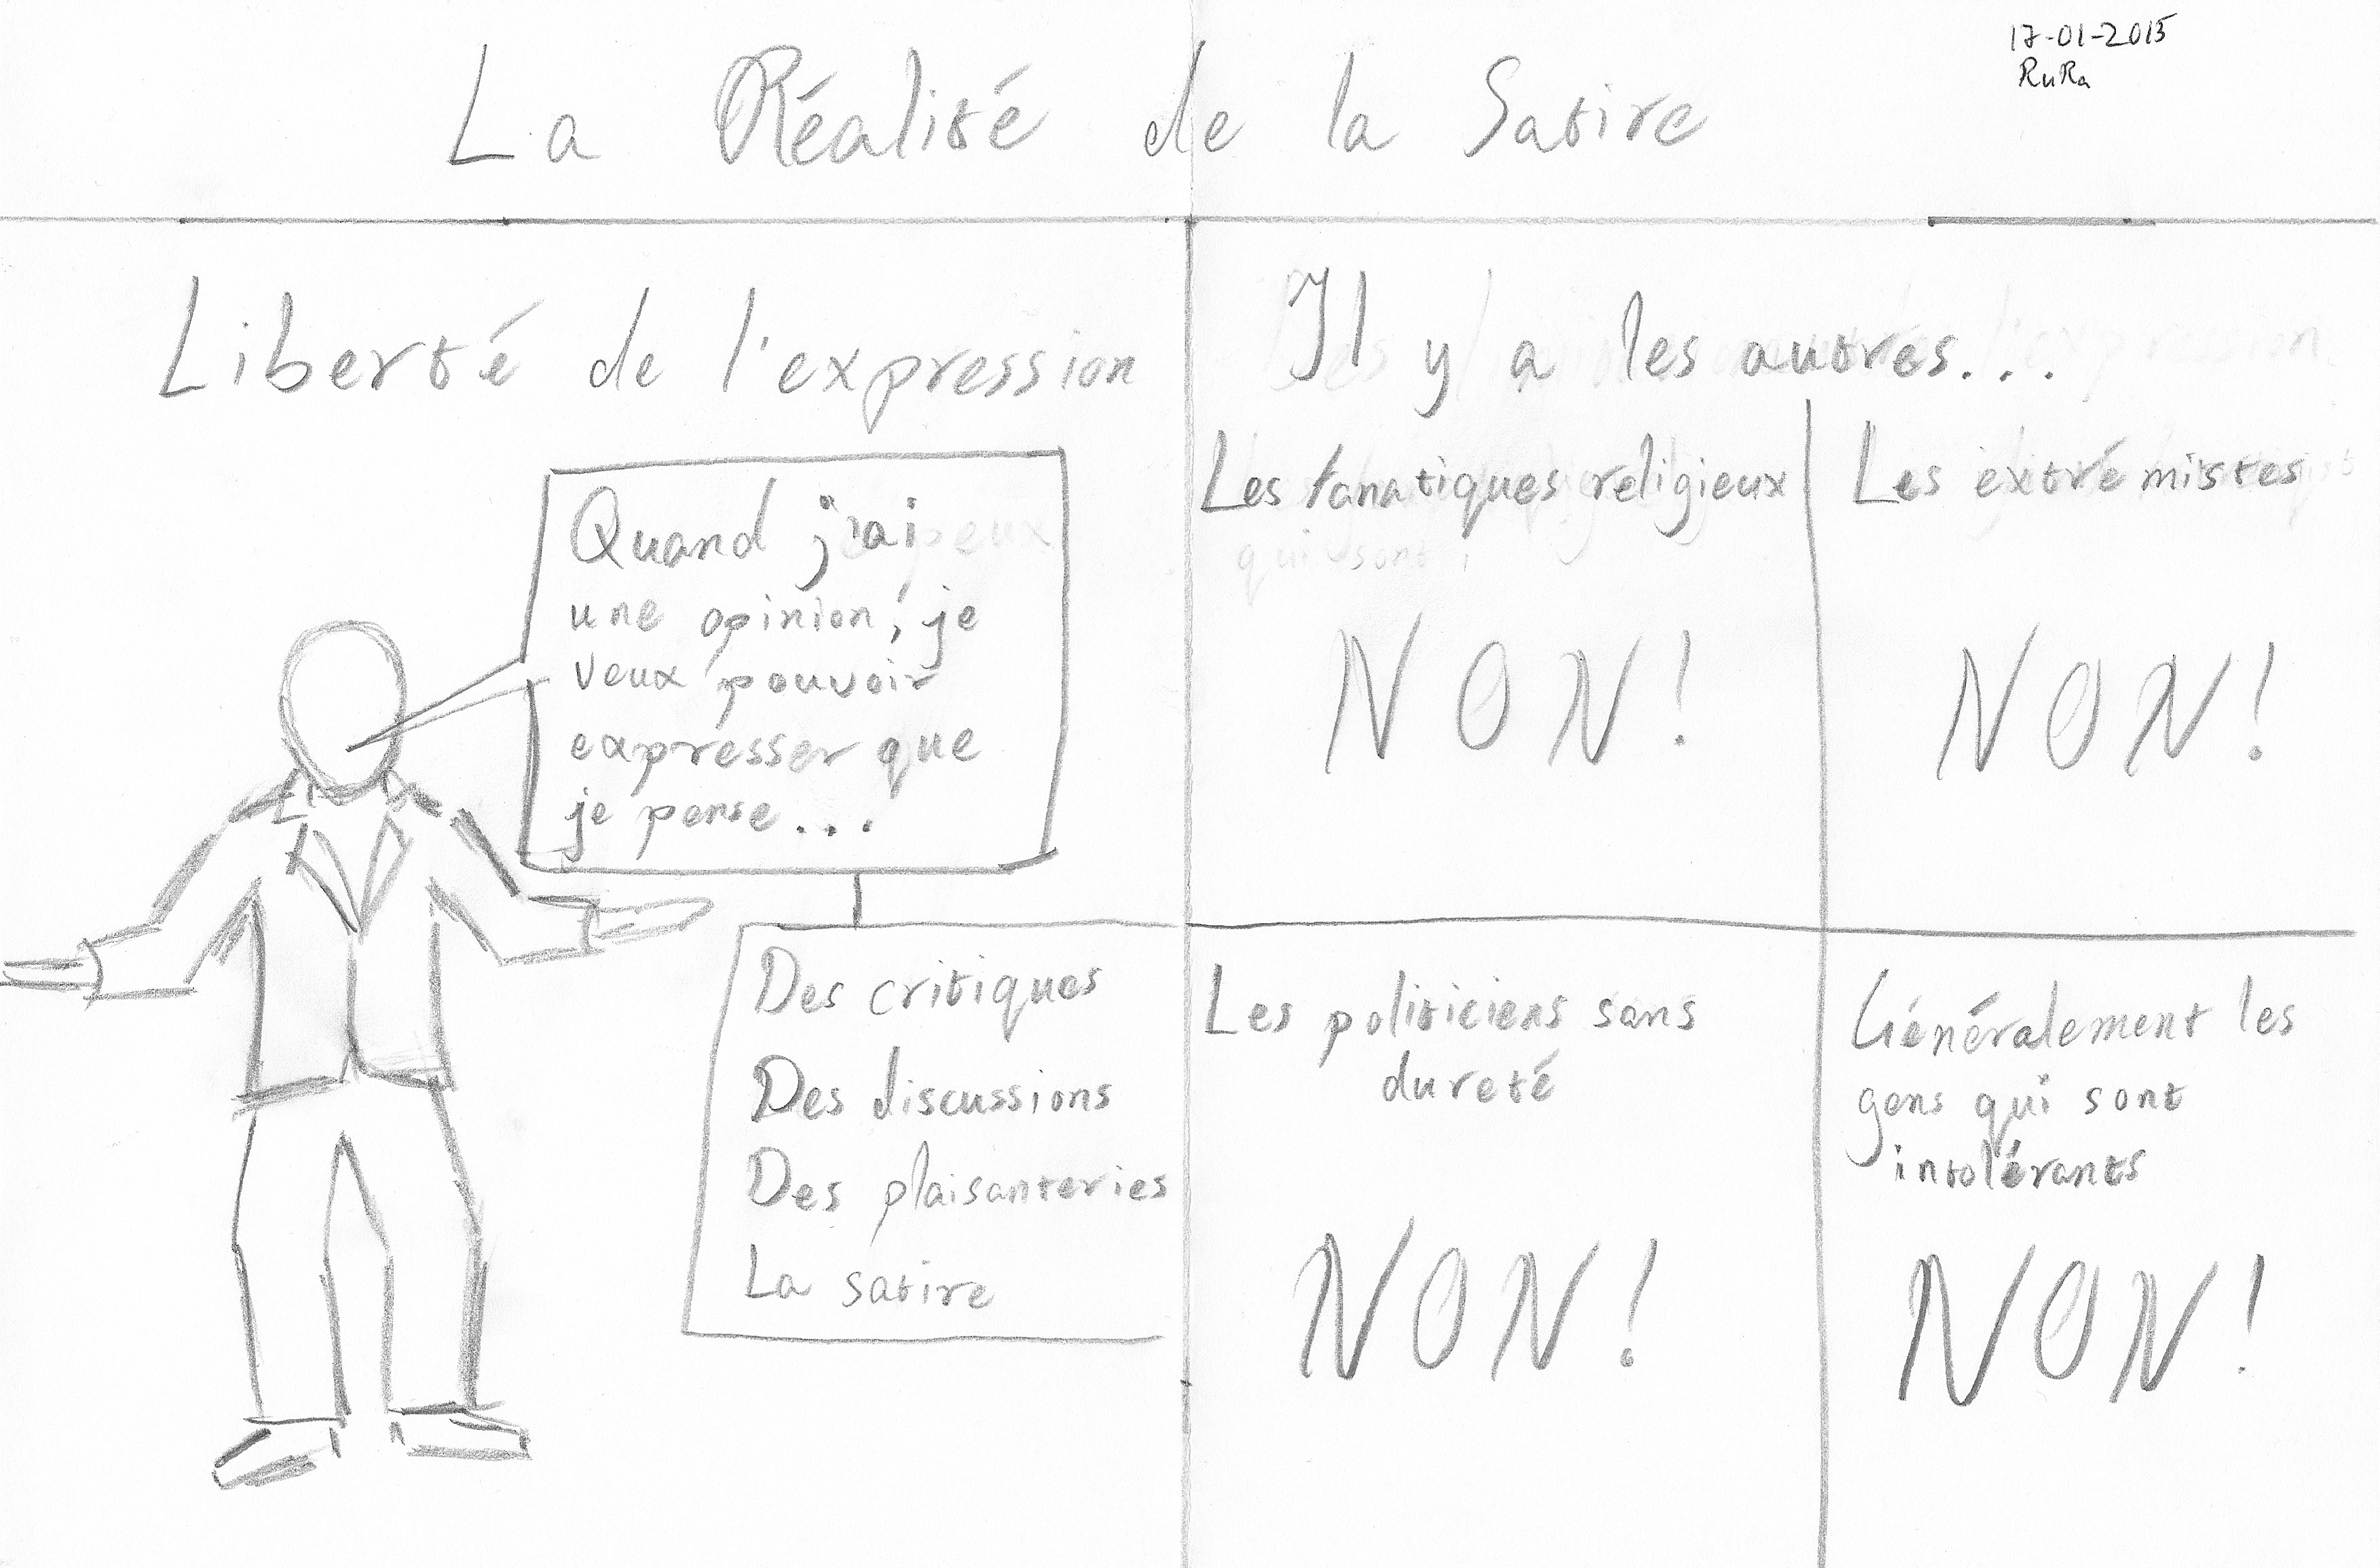 17-01-2015
RuRa
La Réalité de la Satire
Liberté de l'expression
Quand j'ai
une opinion, je
veux pouvoir
expresser que
je pense...
Des critiques
Des discussions
Des plaisanteries
La satire
Il y a les autres...
Les fanatiques religieux
NON!
Les extrémistes
NON!
Les politiciens sans
dureté
NON!
Généralement les
gens qui sont
intolérants
NON!